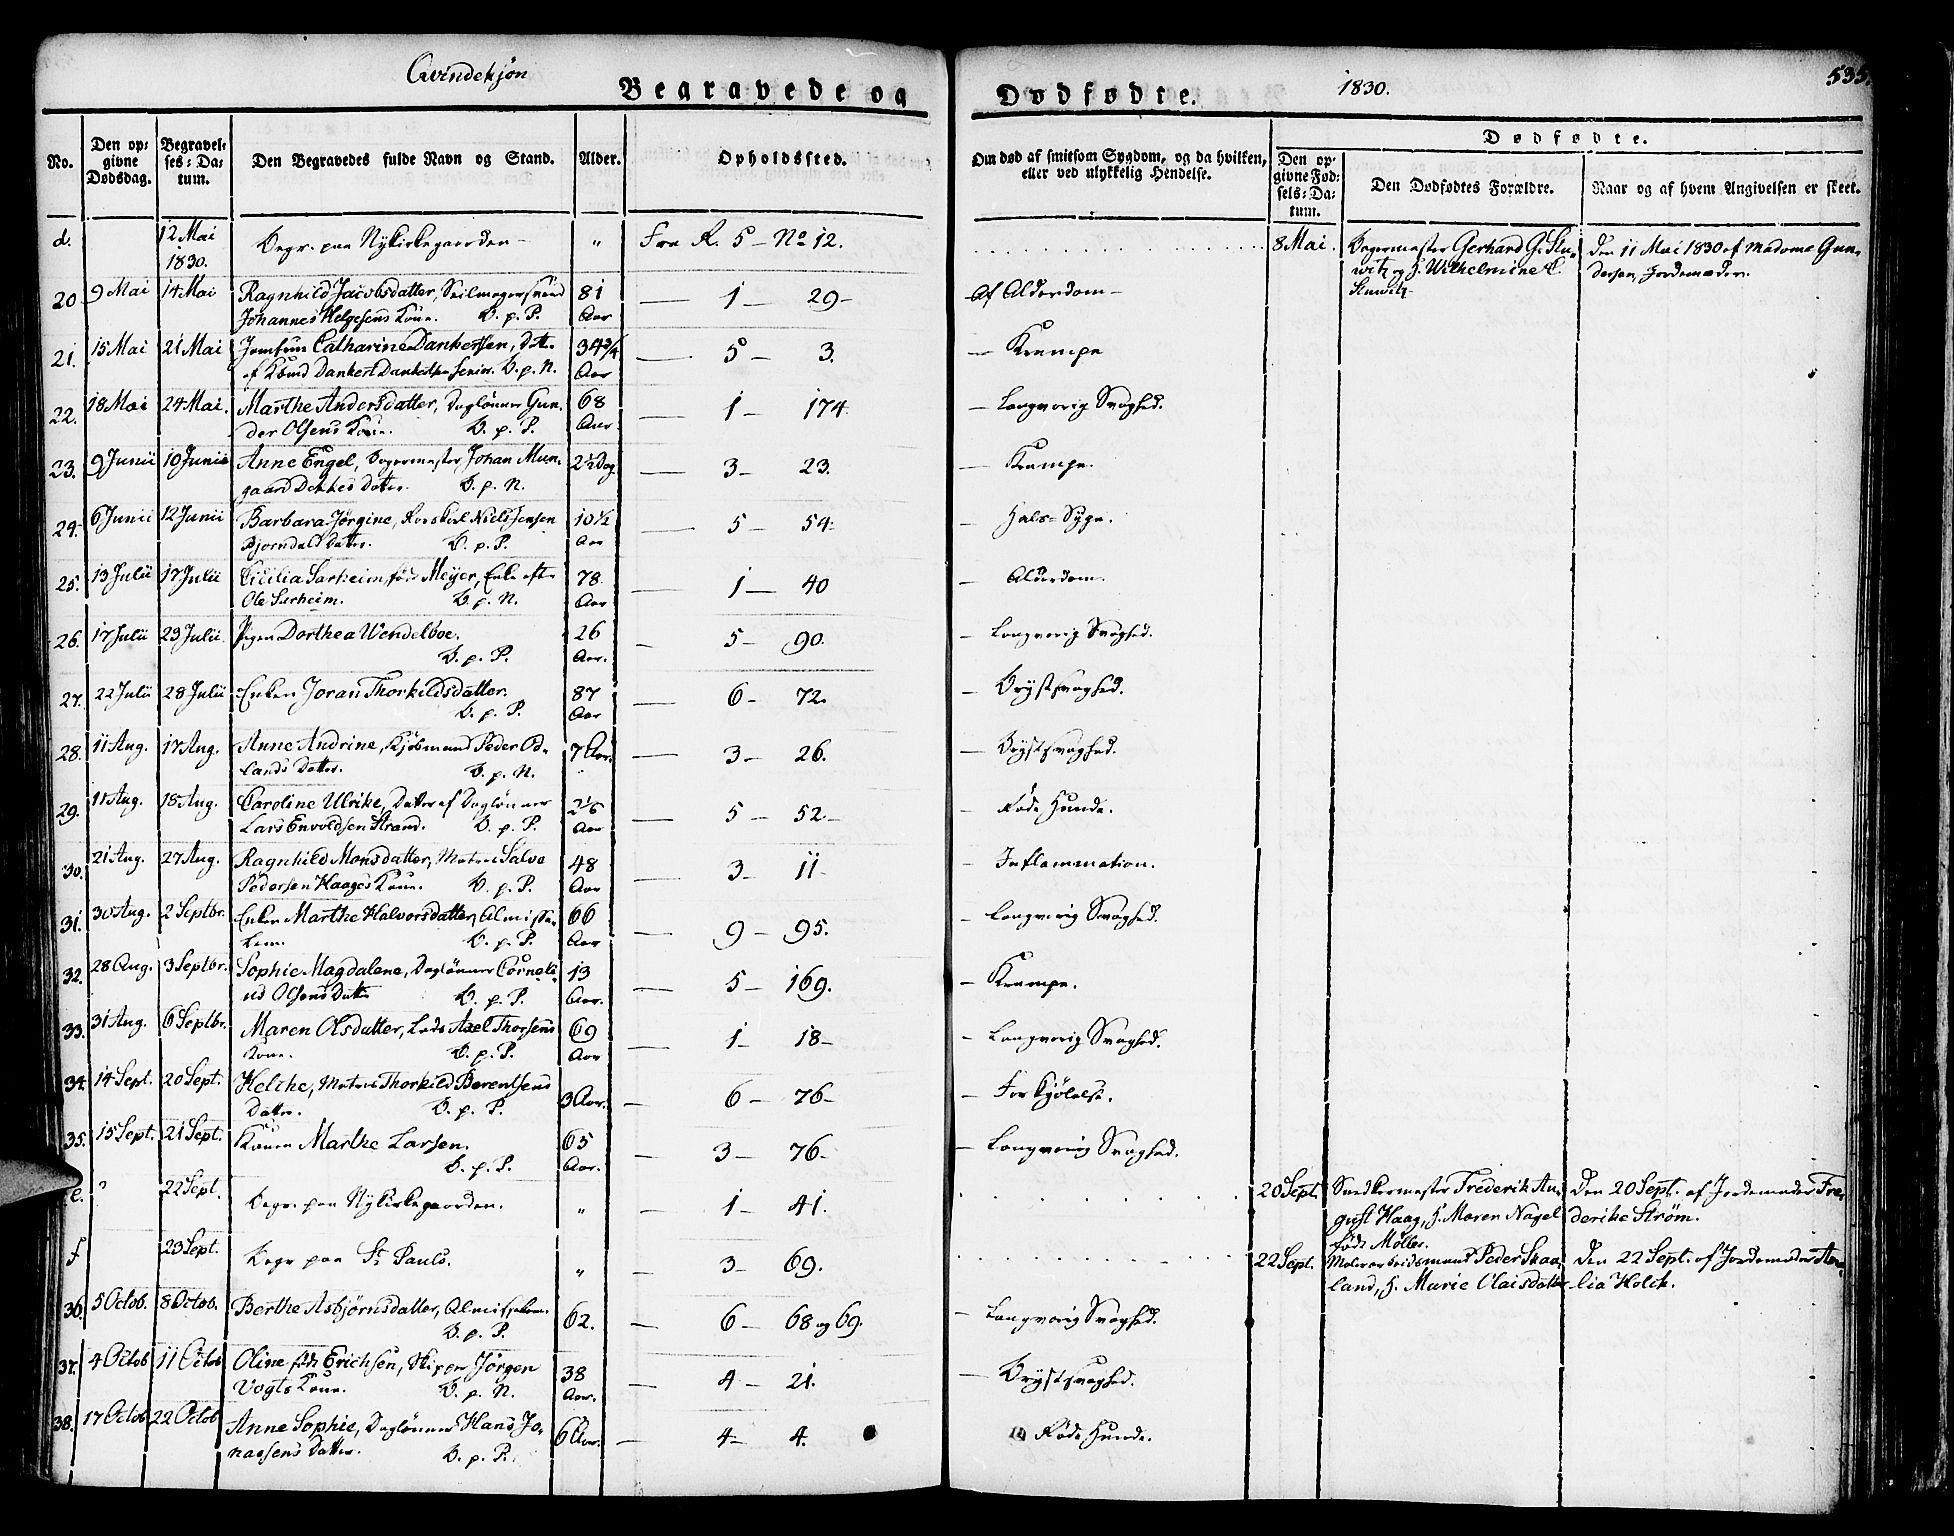 Qvindekjøn
Begravede og
Dødfødte.
1830.
535.
No.
Den opgivne Dødsdag.
Begravelses-Datum.
Den Begravedes fulde Navn og Stand.
Alder.
Opholdssted.
Om død af smitsom Sygdom, og da hvilken, eller ved ulykkelig Hendelse.
Dødfødte.
Den opgivne Fødsels-Datum.
Den Dødfødtes Forældre.
Naar og af hvem Angivelsen er skeet.
d. 12 Mai 1830. Begr. paa Nykirkegaarden - " Fra R. 5 - No 12. 8 Mai. Bagermester Gerhard G. Stuwitz og H. Wilhelmine C. Stuwitz Den 11 Mai 1830 af Madame Gundersen, Jordemoder.
20. 9 Mai 14 Mai Ragnhild Jacobsdatter, Seilmagersvend
Johannes Helgesens Kone. B. p. P. 81 Aar 1 - 29 - Af Alderdom -
21. 15 Mai 21 Mai Jomfrue Catharine Dankertsen, Datter
af Kbmd Dankert Dankertsen senior. B. p. N. 34 3/4 Aar 5 - 3. - Krampe
22. 18 Mai 24 Mai. Marthe Andersdatter, Daglønner Gun-
der Olsens Kone. B. p. P. 68 Aar. 1 - 174. - Langvarig Svaghed.
23. 9 Junii 10 Junii Anne Engel, Bagermester Johan Mun-
gaard Dekkes Datter. B. p. N. 2 1/2 Dag 3 - 23. - Krampe.
24. 6 Junii 12 Junii Barbara Jørgine, Rorskarl Niels Jensen
Bjorndals Datter. B. p. P. 10 1/2 Aar 5 - 54. - Hals-Syge.
25. 13 Julii 17 Julii Cicilia Sarheim, født Meyer, Enke efter
Ole Sarheim. B. p. N. 78. Aar 1 - 40 - Alderdom.
26. 17 Julii 23 Julii Pigen Dorthea Wendelboe.
B. p. P. 26 Aar. 5 - 90. - Langvarig Svaghed.
27. 22 Julii 28 Julii Enken Joran Thorkildsdatter.
B. p. P. 87 Aar 6 - 72. - Brystsvaghed.
28. 11 Aug. 17 Aug. Anne Andrine, Kjøbmand Peder Od-
lands Datter. B. p. N. 7 Aar. 3 - 26. - Brystsvaghed.
29. 11 Aug. 18 Aug. Caroline Ulrike, Datter af Daglønner
Lars Envoldsen Strand. B. p. P. Aar 5 - 52. - Røde Hunde.
30. 21 Aug. 27 Aug. Ragnhild Monsdatter, Matros Salve
Pedersen Haages Kone. B. p. P. 48 Aar 3 - 11 - Inflammation.
31. 30 Aug. 2 Septbr. Enken Marthe Halvorsdatter, Almisse-
lem. B. p. P. 66 Aar 9 - 95. - Langvarig Svaghed.
32. 28 Aug. 3 Septbr. Sophie Magdalene, Daglønner Corneli-
us Olsens Datter B. p. P. 13 Aar. 5 - 169. - Krampe.
33. 31 Aug. 6 Septbr. Maren Olsdatter, Lods Axel Thorsens
Kone. B. p. P. 69 Aar 1 - 18 - - Langvarig Svaghed.
34. 14 Sept. 20 Sept. Helche, Matros Thorkild Berentsens
Datter. B. p. P. 3 Aar. 6 - 76 - - Forkjølelse.
35. 15 Sept. 21 Sept. Konen Marthe Larsen.
B. p. P. 65 Aar. 3 - 76 - - Langvarig Svaghed.
e. ? 22 Sept. Begr. paa Nykirkegaarden. " 1 - 41. 20 Sept. Snedkermester Frederik August Haag, H. Maren Nagel født Møller. Den 20 Sept. af Jordemoder Frederike Strøm.
f 23 Sept. Begr paa St. Pauls. " 3 - 69. 22 Sept. Peder Skaaland, H. Marie Claisdatter Den 22 Sept. af Jordemoder Amalia Holck.
36. 5 Octob. 8 Octob. Berthe Asbjørnsdatter, Almisselem.
B. p. P. 62. 6 - 68 og 69. - Langvarig Svaghed.
37. 4 Octob 11 Octob Oline født Erichsen, Skipper Jørgen
Vogts Kone. B. p. N. 38 Aar. 4 - 21. - Brystsvaghed.
38. 17 Octob 22 Octob Anne Sophie, Daglønner Hans Jo-
nassens Datter. B. p. P. 6 Aar. 4 - 4. Røde Hunde.